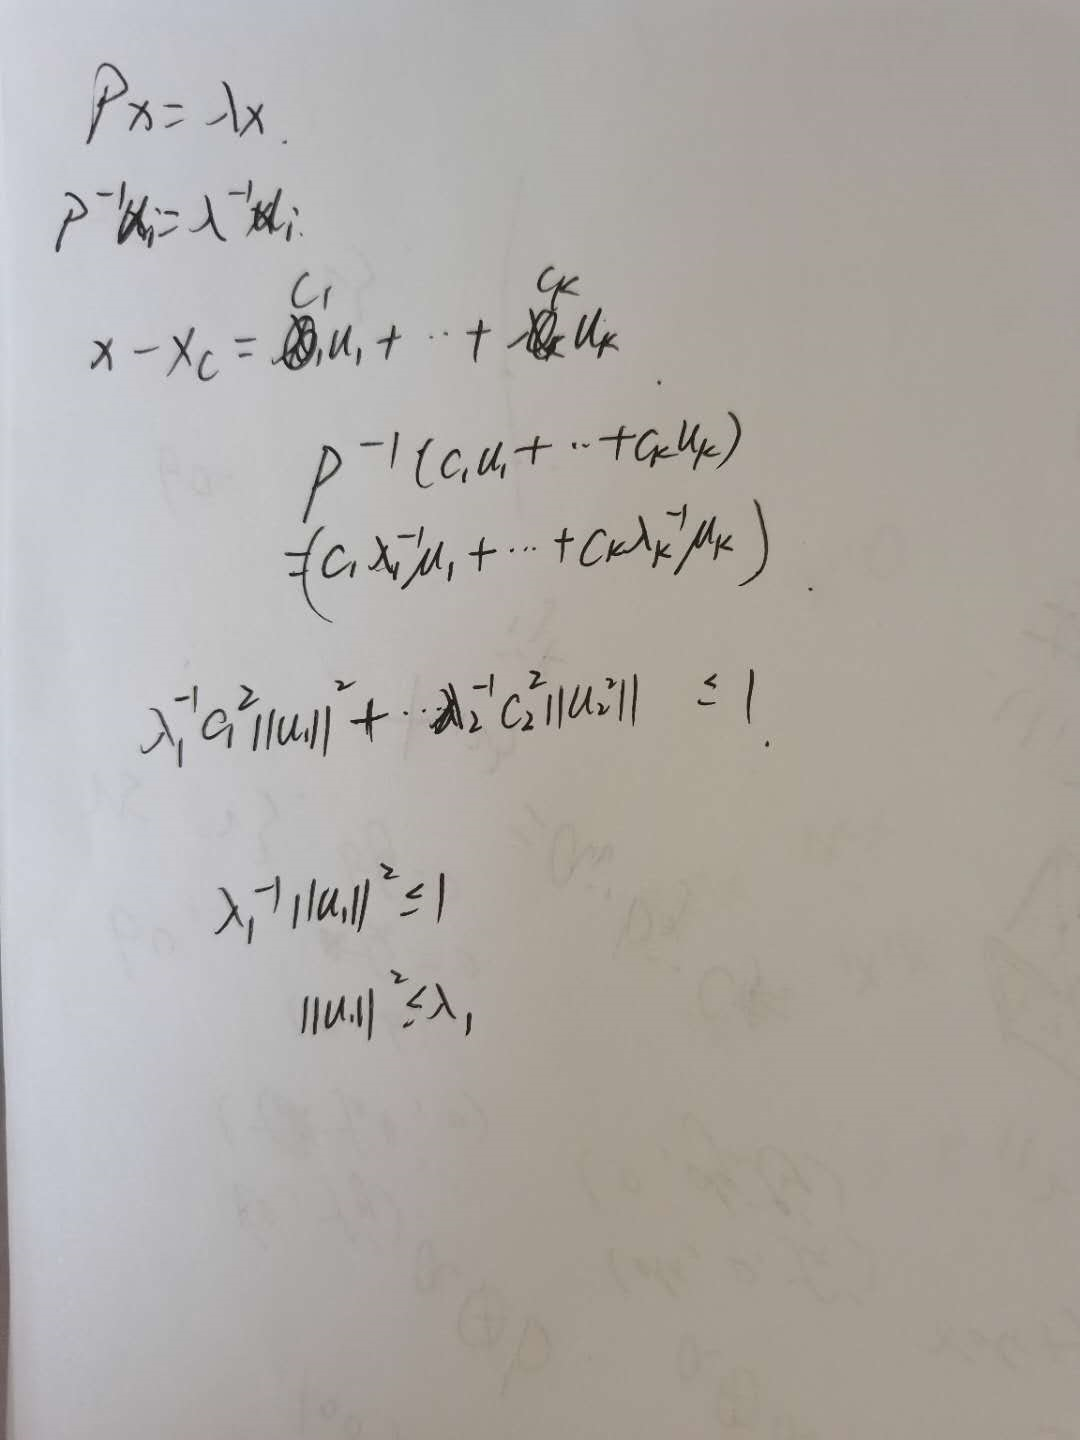 Px = λx.
P⁻¹uᵢ = λ⁻¹uᵢ.
x − x_C = C₁u₁ + ·· + Cₖuₖ
P⁻¹(C₁u₁ + ·· + Cₖuₖ)
=(C₁λ₁⁻¹u₁ + ··· + Cₖλₖ⁻¹uₖ)
λ₁⁻¹C₁²||u₁||² + ··λ₂⁻¹C₂²||u₂²|| ≤ 1.
λ₁⁻¹||u₁||² ≤ 1
||u₁||² ≤ λ₁